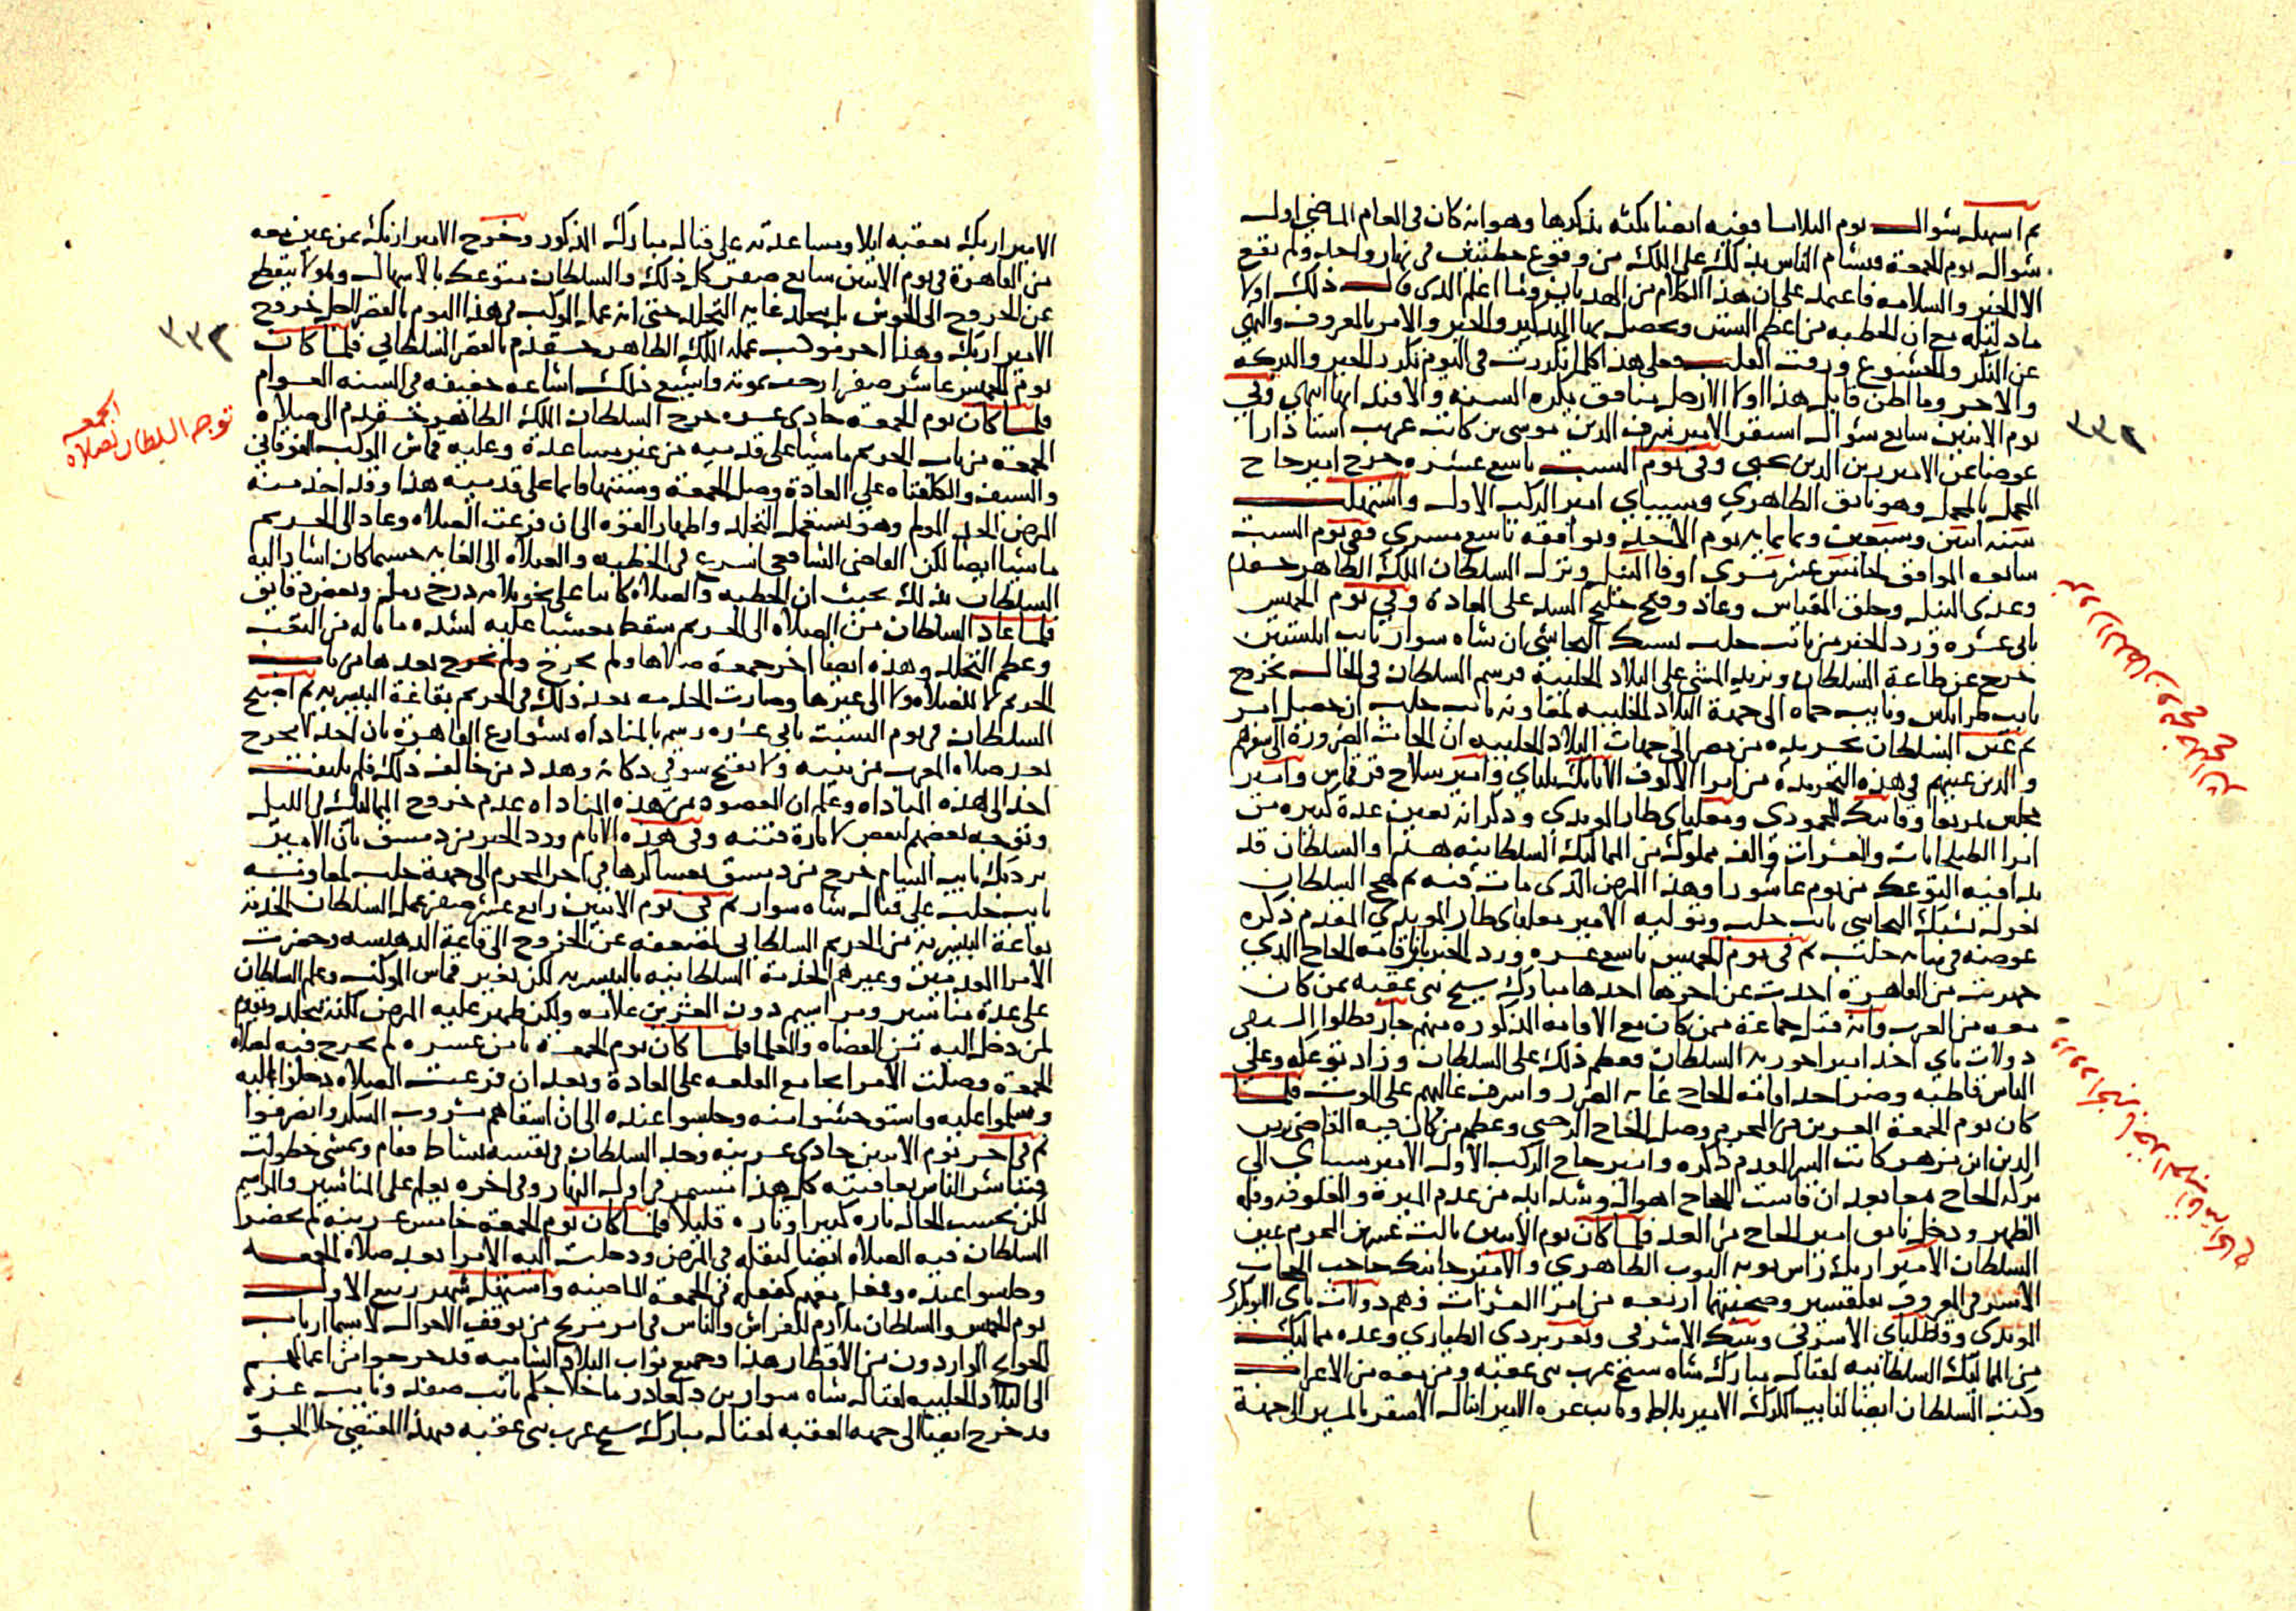 ثم استهل شوال يوم الثلاثا ففيه ايضا نكته نذكرها وهو انه كان في العام الماضي اول
شوال يوم الجمعة فتشام الناس بذلك على الملك من وقوع خطبتين في نهار واحد ولم يقع
الا الخير والسلامه فاعتمد على ان هذا الكلام من الهديان
مع ان الخطبه من اعظم السنن ويحصل بها التذكير والخير والامر بالمعروف والنهي
عن المنكر والخشوع ورقت القلب فعلى هذا كلما تكررت في اليوم تكرر الخير والبركه
والاجر وما اظن قايل هذا اولا الا رجل منافق يكره السنه انتهى وفي
يوم الاثنين سابع شوال استقر الامير شرف الدين موسى بن كاتب غريب استادارا
عوضا عن الامير زين الدين يحيى وفي يوم السبت تاسع عشره خرج امير حاج
المحمل بالمحمل وهو نانق الظاهري وسيباي امير الركب الاول واستهلت
سنه اثنين وسبعين وثمانمايه يوم الاحد ويوافقه تاسع مسري ففي يوم السبت
سابعه الموافق لخامس عشر مسري اوفا النيل ونزل السلطان الملك الظاهر خشقدم
وعدى النيل وخلق المقياس وعاد وفتح خليج السد على العادة وفي يوم الخميس
ثاني عشره ورد الخبر من نائب حلب يشبك البجاسي ان شاه سوار نائب ابلستين
خرج عن طاعة السلطان ويريد المشي على البلاد الحلبية فرسم السلطان في الحال بخروج
نايب طرابلس ونايب حماه الى جهة البلاد الحلبيه لمعاونه نائب حلب ان حصل امر
ثم عين السلطان تجريده من مصر الى جهات البلاد الحلبيه ان الجات الضرورة الى سفرهم
والذين عينهم في هذه التجريدة من امرا الالوف الاتابك يلباي وامير سلاح قرقماس وامير
مجلس تمربغا وقانبك المحمودي ومغلباي طاز المويدي وذكر انه يعين عدة كثيره من
امرا الطبلخانات والعشرات والف مملوك من المماليك السلطانيه هذا والسلطان قد
بدا فيه التوعك من يوم عاشورا وهذا المرض الذي مات فيه ثم صح السلطان
بعزل يشبك البجاسي نائب حلب وتوليه الامير مغلباي طاز المويدي المقدم ذكره
عوضه في نيابه حلب ثم في يوم الخميس تاسع عشره ورد الخبر بان اقامه الحاج الذي
جهزت من القاهرة اخذت عن اخرها اخذها مبارك شيخ بني عقبه بمن كان
معه من العرب وانه قتل جماعة ممن كان مع الاقامه المذكوره منهم جار قطلوا السيفي
دولات باي احد امير اخوريه السلطان فعظم ذلك على السلطان وزاد توعكه وعلى
الناس قاطبه وضر اخذ اقامه الحاج غايه الضرر واشرف غالبهم على الموت فلما
كان يوم الجمعة العشرين من المحرم وصل الحاج الرجبي وعظيم من كان فيه القاضي زين
الدين ابن مزهر كاتب السر المقدم ذكره وامير حاج الركب الاول الامير سيباي الى
بركه الحاج معا بعد ان قاست الحجاج اهوالا وشدايد من عدم الميرة والعلوفه وقله
الظهر ودخل نانق امير الحاج من الغد فلما كان يوم الاثنين ثالث عشرين المحرم عين
السلطان الامير ازبك راس نوبه النوب الظاهري والامير جانبك حاجب الحجاب
الاشرفي المعروف بقلقسيز وصحبتهما اربعه من امرا العشرات وهم دولات باي الابوبكري
المويدي وقطلباي الاشرفي وتنبك الاشرفي وتغري بردي الطياري وعده مماليك
من المماليك السلطانيه لقتال مبارك شاه شيخ عرب بني عقبه ومن معه من الاعراب
وكتب السلطان ايضا لنايب الكرك الامير بلاط ونايب غزه الامير اينال الاشقر بالمسير الى جهة
٣٣٢
الامير ازبك بعقبه ايلا ومساعدته على قتال مبارك المذكور وخرج الامير ازبك بمن عين معه
من القاهرة في يوم الاثنين سابع صفر كل ذلك والسلطان متوعك بالاسهال وهو لا ينقطع
عن الخروج الى الحوش بل يتجلد غايه التجلد حتى انه عمل الموكب في هذا اليوم بالقصر لاجل خروج
الامير ازبك وهذا اخر موكب عمله الملك الظاهر خشقدم بالقصر السلطاني فلما كان
يوم الخميس عاشر صفر ارجف بموته واشيع ذلك اشاعه خفيفه في السنه العوام
فلما كان يوم الجمعة حادي عشره خرج السلطان الملك الظاهر خشقدم الى صلاه
الجمعة من باب الحريم ماشيا على قدميه من غير مساعدة وعليه قماش الموكب الفوقاني
والسيف والكلفتاه على العادة وصلى الجمعة وسننها قايما على قدميه هذا وقد اخذ منه
المرض الحد المولم وهو يستعمل التجلد واظهار القوه الى ان فرغت الصلاه وعاد الى الحريم
ماشيا ايضا لكن القاضي الشافعي اسرع في الخطبه والصلاه الى الغايه حسبما كان اشار اليه
السلطان بذلك بحيث ان الخطبه والصلاه كانتا على نحو ثلاثه درج رمل وبعض دقايق
فلما عاد السلطان من الصلاه الى الحريم سقط مغشيا عليه لشده ما ناله من التعب
وعظم التجلد وهذه ايضا اخر جمعة صلاها ولم يخرج بعدها من باب
الحريم لا للصلاه ولا الى غيرها وصارت الخدمه بعد ذلك في الحريم بقاعة البيسريه ثم اصبح
السلطان في يوم السبت ثاني عشره رسم بالمناداه بشوارع القاهرة بان احدا لا يخرج
بعد صلاه المغرب من بيته ولا يفتح سوقي دكانه وهدد من خالف ذلك فلم يلتفت
احد الى هذه المناداه وعلم ان المقصود من هذه المناداه عدم خروج المماليك في الليل
وتوجه بعضهم لبعض لاثارة فتنه وفي هذه الايام ورد الخبر من دمشق بان الامير
بردبك نايب الشام خرج من دمشق بعساكرها في اخر المحرم الى جهة حلب لمعاونه
نايب حلب على قتال شاه سوار ثم في يوم الاثنين رابع عشر صفر عمل السلطان الخدمه
بقاعة البيسريه من الحريم السلطاني لضعفه عن الخروج الى قاعة الدهيشه وحضرت
الامرا المقدمين وغيرهم الخدمة السلطانيه بالبيسريه لكن بغير قماس الموكب وعلم السلطان
على عدة مناشير ومراسيم دون العشرين علامه ولكن ظهر عليه المرض لكنه يتجلد ويقوم
لمن دخل اليه من القضاه والعلما فلما كان يوم الجمعة ثامن عشره لم يخرج فيه لصلاه
الجمعة وصلت الامرا بجامع القلعه على العادة وبعد ان فرغت الصلاه دخلوا اليه
وسلموا عليه واستوحشوا منه وجلسوا عنده الى ان اسقاهم مشروب السكر وانصرفوا
ثم في اخر يوم الاثنين حادي عشرينه وجد السلطان في نفسه نشاط فقام ومشى خطوات
فتباشر الناس بعافيته كل هذا مستمر في اول النهار وفي اخره يعلم على المناشير والمراسيم
لكن بحسب الحال تاره كثيرا وتاره قليلا فلما كان يوم الجمعه خامس عشرينه لم يحضر
السلطان فيه الصلاه ايضا لثقله في المرض ودخلت اليه الامرا بعد صلاه الجمعه
وجلسوا عنده وفعل بهم كفعله في الجمعة الماضيه واستهل شهر ربيع الاول
يوم الخميس والسلطان ملازم للفراش والناس في امر مريج من توقف الاحوال لاسيما ارباب
الحوايج الواردون من الاقطار هذا وجميع نواب البلاد الشاميه قد خرجوا من اعمالهم
الى البلاد الحلبيه لقتال شاه سوار بن دلغادر ما خلا جكم نائب صفد ونايب غزه
قد خرج ايضا الى جهه العقبه لقتال مبارك شيخ عرب بني عقبه فبهذا المقتضى خلا الجو
٣٣٢
توجه السلطان لصلاه
الجمعه